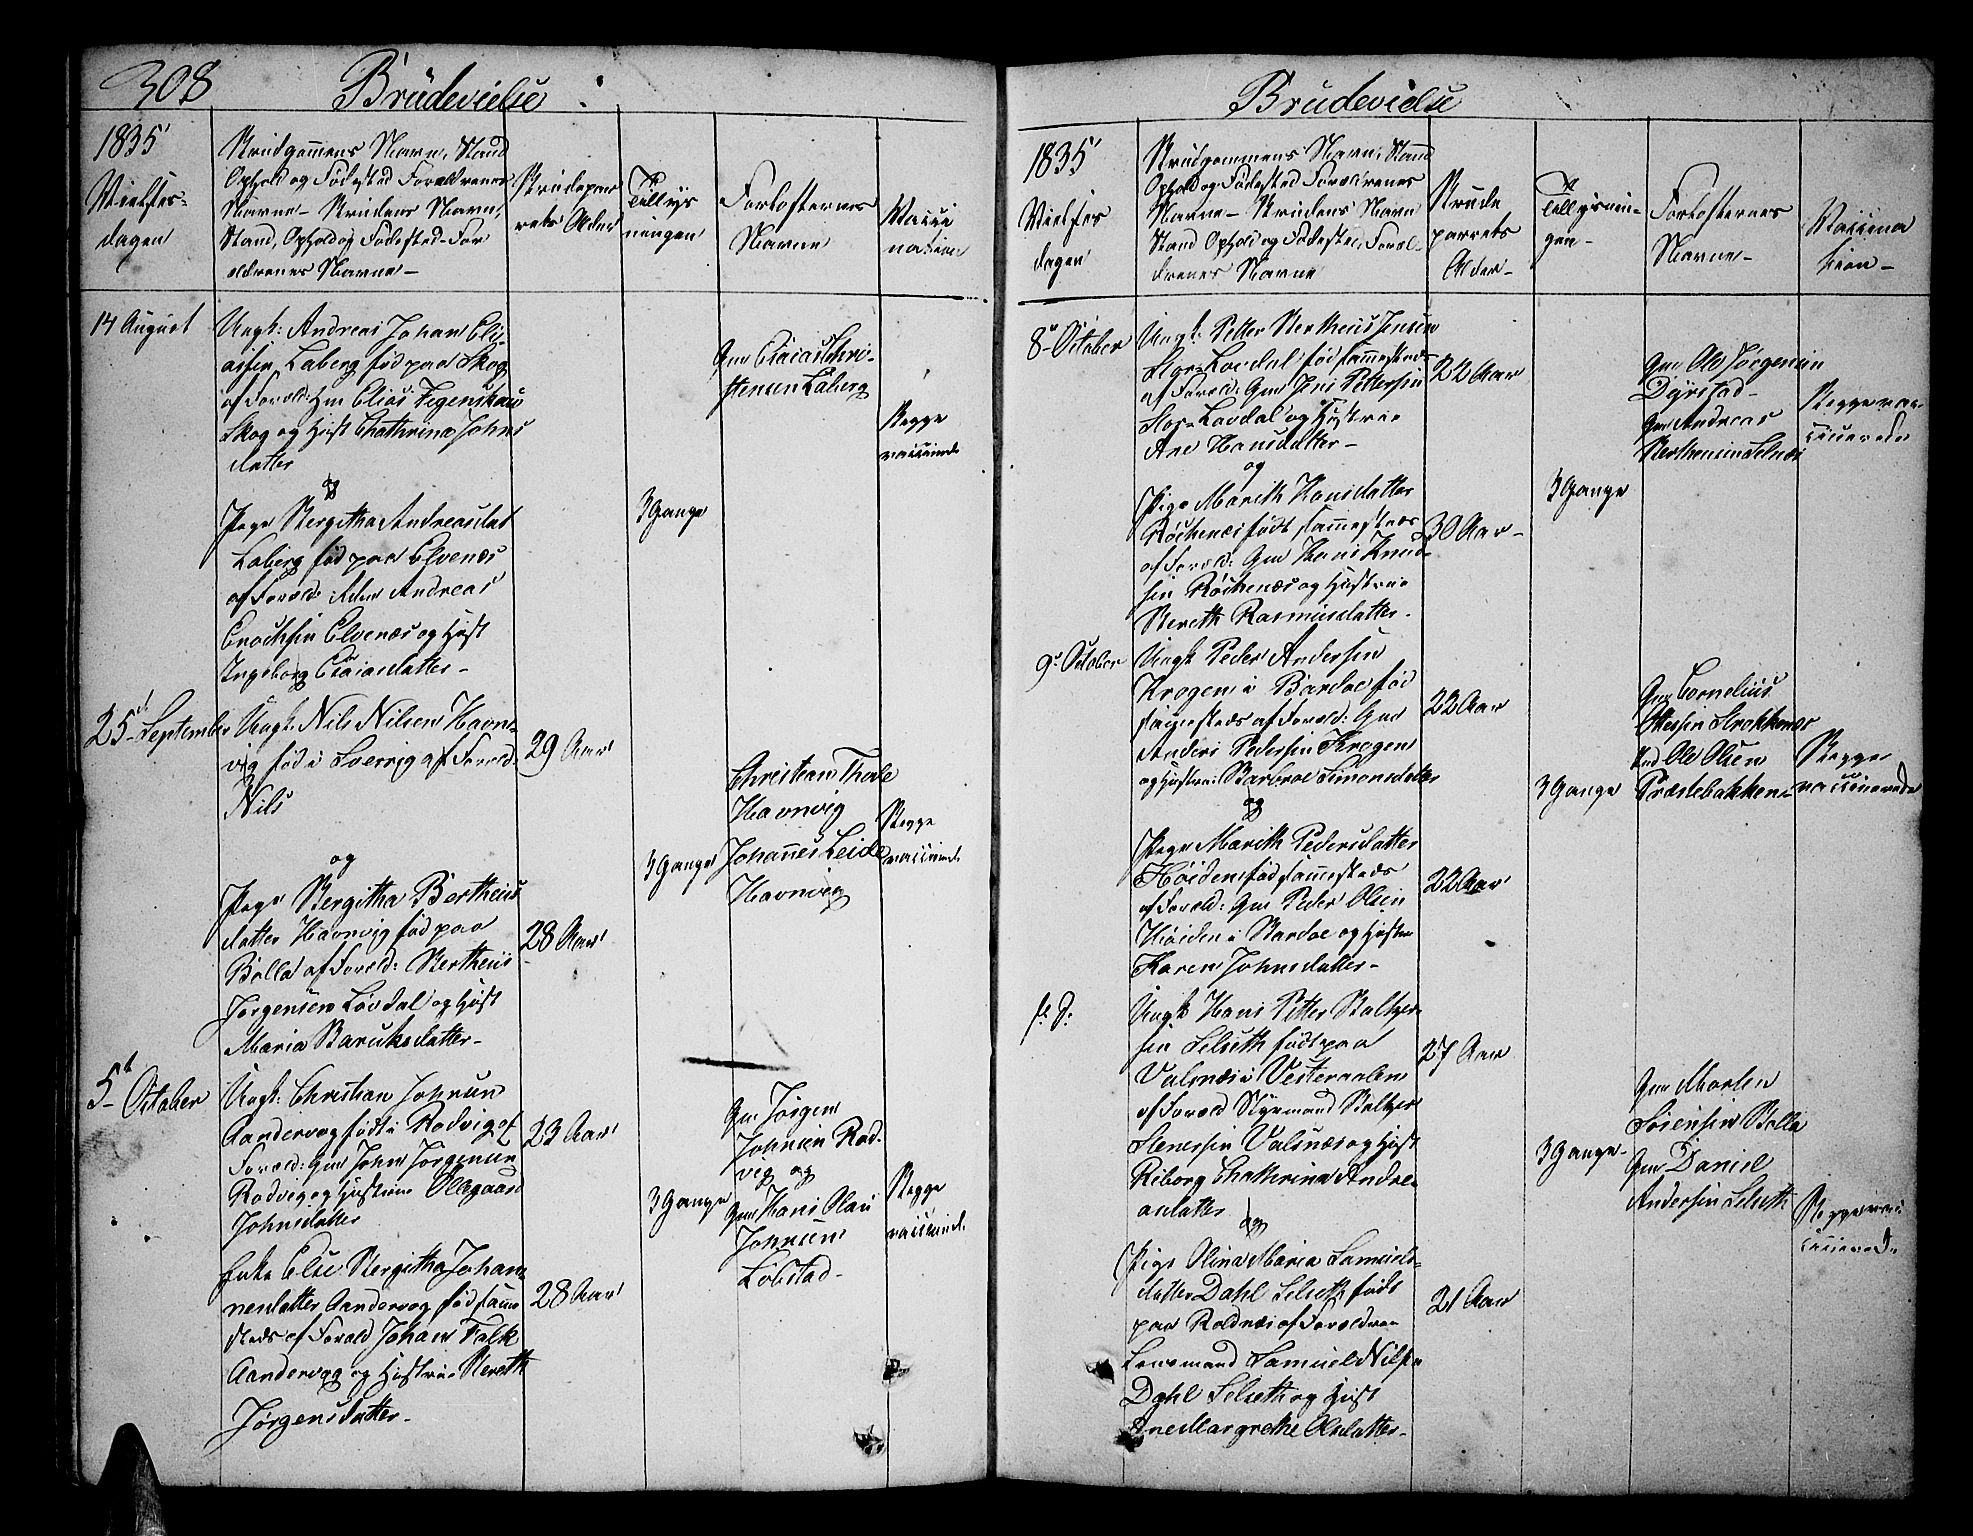 308
Brudevielse
1835
Vielses-
dagen
Brudgommens Navn, Stand
Ophold og Fødested Forældrenes
Navne – Brudens Navn,
Stand, Ophold og Fødested – For
ældrenes Navne –
Brudepar
rets Alder
Tillys
ningen
Forlofternes
Navne
Vacci
nation
14 August
Ungk: Andreas Johan Eli-
assen Laberg fød paa Skog
af Foræld: Gm Elias
Skog og Hust Chathrina Johns
datter
og
Pige Bergitha Andreasdat
Laberg fød paa Elvenæs
af Foræld: Andreas
Enochsen Elvenæs og Hust
Ingeborg Esaiasdatter –
3 Gange
Gm Esaias Chri-
stensen Laberg
Begge
vaccinede
25 September
Ungk: Nils Nilsen Havn-
vig fød i Sverrig af Foræld
Nils
29 Aar
og
Pige Bergitha Bertheus
datter Havnvig fød paa
Bolla af Foræld: Bertheus
Jørgensen Løvdal og Hust
Maria Baruksdatter –
28 Aar
3 Gange
Christian Thode
Havnvig
Johannes Leide
Havnvig
Begge
vaccinede
5 October
Ungk: Christian Johnsen
Aandervog født i Rodvig af
Foræld: Gm John Jørgensen
Rodvig og Hustrue Ollegaard
Johnsdatter
23 Aar
Enke Else Bergitha Johan-
nesdatter Aandervog fød samme
steds af Foræld Johan Falk
Aandervog og Hustrue Bereth
Jørgensdatter –
28 Aar
3 Gange
Gm Jørgen
Johnsen Rod-
vig og
Gm Hans Olau
Johnsen
Løbstad –
Begge
vaccinede
Brudevielse
1835
Vielses
dagen
Brudgommens Navn, Stand
Ophold og Fødested Forældrenes
Navne – Brudens Navn
Stand Ophold og Fødested, Foræl-
drenes Navne
Brude
parrets
Alder –
Tillysnin-
gen –
Forlofternes
Navne –
Vaccina
tion –
8 October
Ungk: Petter Bertheus Jensen
Stor-Løvdal fød sammesteds
af Foræld: Gm Jens Pettersen
Stor-Løvdal og Hustrue
Ane Hansdatter –
22 Aar
og
Pige Marith Hansdatter
Rochenæs født sammesteds
af Foræld: Gm Hans Knud-
sen Rochenæs og Hustrue
Bereth Rasmusdatter –
30 Aar –
3 Gange
Gm Ole Jørgensen
Dyrstad –
Gm Andreas
Berthensen Selnæs
Begge vac-
cinerede
9 October
Ungk Peder Andersen
Krogen i Bardoe fød
sammesteds af Foræld: Gm
Anders Pedersen Krogen
og Hustrue: Barbroe Simonsdatter
22 Aar
og
Pige Marith Pedersdatter
Høiden fød sammesteds
af Foræld: Gm Peder Olsen
Høiden i Bardoe og Hustrue
Karen Johnsdatter –
22 Aar
3 Gange
Gm Cornelius
Olesen Strokkenæs
Ole Olsen
Præstebakken –
Begge
vaccinerede
s. D.
Ungk Hans Petter Baltzer
sen Selseth født paa
Valsnæs i Vesteraalen
af Foræld Styrmand Baltzer
Stenersen Valsnæs og Hust
Riborg Chathrina Andre-
asdatter
27 Aar
og
Pige Olina Maria Samuels-
datter Dahl Selseth født
paa Roldnæs af Forældrene
Lensmand Samuel Nilsen
Dahl Selseth og Hust
Ane Margrethe Olsdatter –
21 Aar
3 Gange –
Gm Morten
Sørensen Bolla
Gm Daniel
Andersen Selseth
Begge vac
cinerede